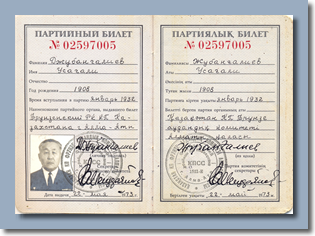 ПАРТИЙНЫЙ БИЛЕТ
№ 02597005
Фамилия Джубангалиев
Имя Усагали
Отчество
Год рождения 1908
Время вступления в партию январь 1932
Наименование партийного органа, выдавшего билет
Фрунзенский РК КП Ка-
захстана г. Алма-Ата
КПСС
Дата выдачи 22 мая 1973 г.
ПАРТИЯЛЫҚ БИЛЕТ
№ 02597005
Фамилиясы Жубангалиев
Аты Усагали
Әкесінің аты
Туған жылы 1908
Партияға кірген уақыты январь 1932
Билетті берген партия органының
Қазақстан КП Фрунзе
аудандық комитеті
Алматы қаласы
КПСС
Берілген уақыты 22 май 1973 ж.